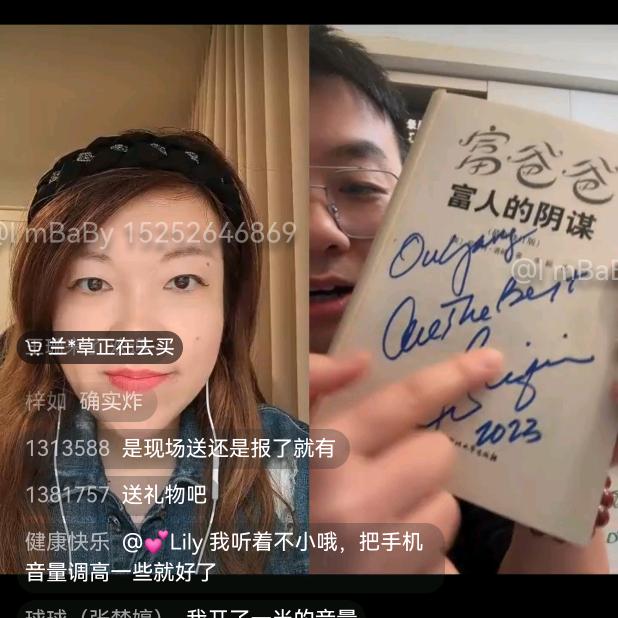 @I'mBaBy 15252646869
富爸爸
富人的阴谋
Ouyang
@I'mBaB
are The Best
2023
兰*草正在去买
梓如 确实炸
1313588 是现场送还是报了就有
1381757 送礼物吧
健康快乐 @💕Lily 我听着不小哦，把手机
音量调高一些就好了